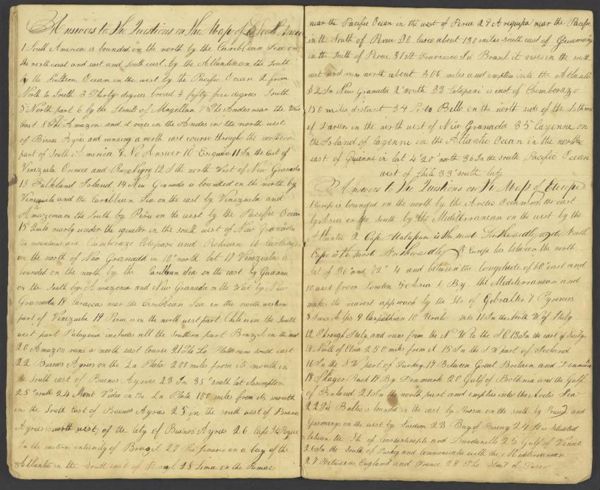 Answers to the Questions on the Map of South America
1 South America is bounded on the north by the Caribbean Sea on
the north east and east and south east by the Atlantic on the south
by the Southern Ocean on the west by the Pacific Ocean 2 from
North to South 3 Thirty degrees 4 fifty five degrees South
5 North part 6 by the Strait of Magellan 7 The Andes near the
west 8 The Amazon and it rises in the Andes in the north west
of Buenos Ayres and running a north east course through the northern
part of South America 9 No Answer 10 11 In the East of
Venezuela 12 In the north West of New Granada
13 Falkland Island 14 New Granada is bounded on the north by
Venezuela and the Caribbean Sea on the east by Venezuela and
Amazonia on the South by Peru on the west by the Pacific Ocean
15 Quito nearly under the equator in the south west of New Granada
its mountains are Chimborazo Cotopaxi and 16
on the north of New Granada in 10° north lat 17 Venezuela is
bounded on the north by the Caribbean Sea on the east by Guiana
on the South by Amazonia and New Granada on the West by New
Granada 18 Caracas near the Caribbean Sea on the north western
part of Venezuela 19 Peru in the north west part Chile in the South
west part Patagonia includes all the Southern part Brazil in the east
20 Amazon runs a north east course 21 The La Plata runs south east
22 Buenos Ayres on the La Plata 200 miles from its mouth in
the south east of Buenos Ayres 23 In 35° south lat Assumption
25° south 24 Mont Video on the La Plata 150 miles from its mouth
in the South East of Buenos Ayres 25 in the south west of Buenos
Ayres north west of the city of Buenos Ayres 26 Cape St Roque
In the eastern extremity of Brazil 27 Rio Janeiro on a bay of the
Atlantic in the South east of Brazil 28 Lima on the
near the Pacific Ocean in the west of Peru 29 Arequipa near the Pacific
in the South of Peru 30 Cusco about 130 miles south east of
in the South of Peru 31 St Francisco In Brazil it rises in the south
east and runs north about 400 miles and empties into the Atlantic
32 In New Granada 2° north 33 Cotopaxi is east of Chimborazo
150 miles distant 34 Porto Bello on the north side of the Isthmus
of Darien in the north west of New Granada 35 Cayenne on
the Island of Cayenne in the Atlantic Ocean in the north
east of Guiana in lat 4° 20' north 36 In the South Pacific Ocean
west of Chili 33° south lat
Answers to the Questions on the Map of Europe
1 Europe is bounded on the north by the Arctic Ocean on the east
by Asia on the South by the Mediterranean on the west by the
Atlantic 2 Cape Matapan is the most Southwardly North
Cape is the most Northwardly 3 Europe lies between the north
lat of 36° and 72° 4 and between the longitude of 60° east and
10 west from London 5 Asia 6 By the Mediterranean and
makes the nearest approach by the Str of Gibralter 7 Pyrenees
8 Alps 9 Carpathian 10 Ural 11 In the North W of Italy
12 Through Italy and runs from the N W to the S E 13 In the east of Sicily
14 North of Etna 250 miles from it 15 In the S W part of Iceland
16 In the S W part of Turkey 17 Between Great Britain and
18 Skager Rack 19 By Denmark 20 Gulf of Bothnia and the Gulf
of Finland 21 In the north part and empties into the Arctic Sea
22 The Baltic is bounded on the east by Russia on the south by Prussia and
Germany on the west by Sweden 23 Bay of Biscay 24 It is situated
between the Str of Constantinople and Dardanells 25 Gulf of Venice
26 In the South of Turkey and communicates with the Mediterranean
27 Between England and France 28 The Strait of Dover